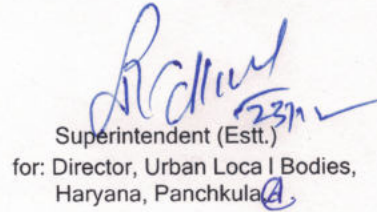 Superintendent (Estt.)
for: Director, Urban Loca l Bodies,
Haryana, Panchkula